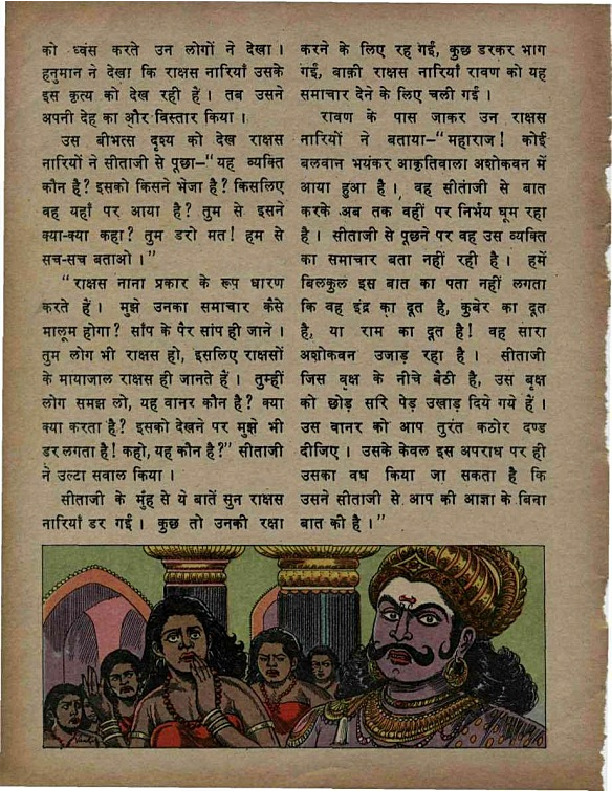 को ध्वंस करते उन लोगों ने देखा ।
हनुमान ने देखा कि राक्षस नारियाँ उसके
इस कृत्य को देख रही हैं । तब उसने
अपनी देह का और विस्तार किया ।
उस बीभत्स दृश्य को देख राक्षस
नारियों ने सीताजी से पूछा–“यह व्यक्ति
कौन है? इसको किसने भेंजा है? किसलिए
वह यहाँ पर आया है? तुम से इसने
क्या-क्या कहा? तुम डरो मत! हम से
सच-सच बताओ ।”
“राक्षस नाना प्रकार के रूप धारण
करते हैं । मुझे उनका समाचार कैसे
मालूम होगा? साँप के पैर सांप ही जाने ।
तुम लोग भी राक्षस हो, इसलिए राक्षसों
के मायाजाल राक्षस ही जानते हैं । तुम्हीं
लोग समझ लो, यह वानर कौन है? क्या
क्या करता है? इसको देखने पर मुझे भी
डर लगता है! कहो, यह कौन है?” सीताजी
ने उल्टा सवाल किया ।
सीताजी के मुँह से ये बातें सुन राक्षस
नारियाँ डर गईं । कुछ तो उनकी रक्षा
करने के लिए रह गईं, कुछ डरकर भाग
गईं, बाक़ी राक्षस नारियाँ रावण को यह
समाचार देने के लिए चली गईं ।
रावण के पास जाकर उन राक्षस
नारियों ने बताया–“महाराज! कोई
बलवान भयंकर आकृतिवाला अशोकवन में
आया हुआ है । वह सीताजी से बात
करके अब तक वहीं पर निर्भय घूम रहा
है । सीताजी से पूछने पर वह उस व्यक्ति
का समाचार बता नहीं रही है । हमें
बिलकुल इस बात का पता नहीं लगता
कि वह इंद्र का दूत है, कुबेर का दूत
है, या राम का दूत है! वह सारा
अशोकवन उजाड़ रहा है । सीताजी
जिस वृक्ष के नीचे बैठी है, उस वृक्ष
को छोड़ सारे पेड़ उखाड़ दिये गये हैं ।
उस वानर को आप तुरंत कठोर दण्ड
दीजिए । उसके केवल इस अपराध पर ही
उसका वध किया जा सकता है कि
उसने सीताजी से आप की आज्ञा के बिना
बात की है ।”